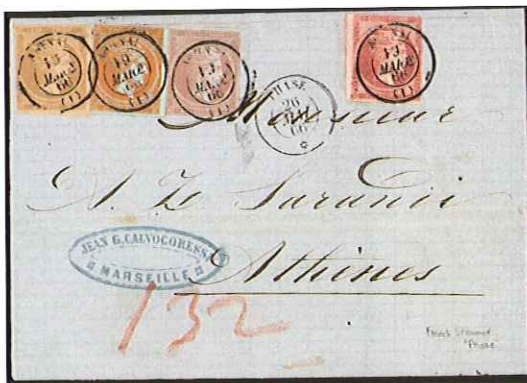 ΑΘΗΝΑΙ
13
ΜΑΙΟΣ
66
(1)
ΑΘΗΝΑΙ
13
ΜΑΙΟΣ
66
(1)
ΑΘΗΝΑΙ
13
ΜΑΙΟΣ
66
(1)
ΑΘΗΝΑΙ
13
ΜΑΙΟΣ
66
(1)
PHASE
26
MAI
66
Monsieur
A. Z. Sarandi
Athènes
JEAN G. CALVOCORESSI
MARSEILLE
132
French Steamer
"Phase"